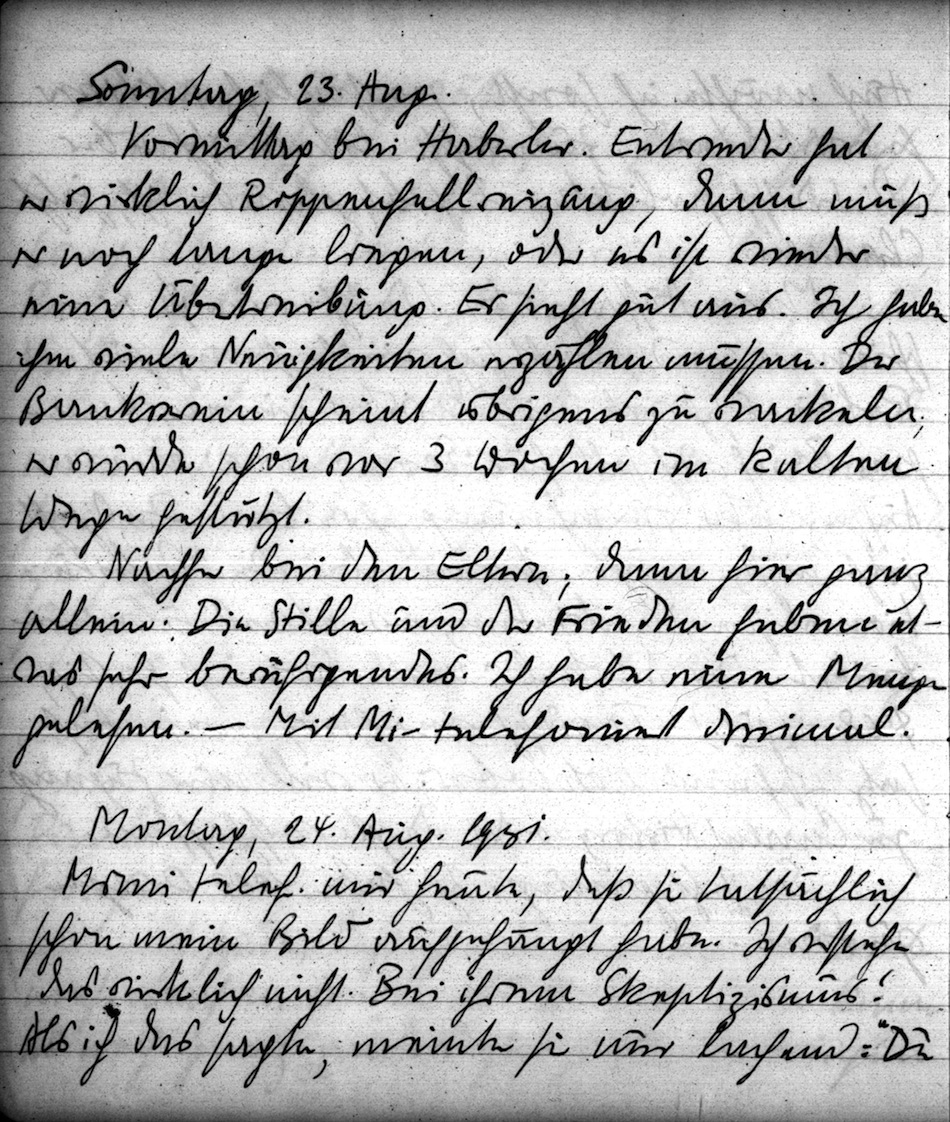 Sonntag, 23. Aug.
Vormittag bei Haberler. Entweder hat
er wirklich Rippenfellreizung, dann muß
er noch lange liegen, oder es ist wieder
eine Übertreibung. Er sieht gut aus. Ich habe
ihm viele Neuigkeiten erzählen müssen. Der
Bankverein scheint übrigens zu wackeln,
er wurde schon vor 3 Wochen im kalten
Wege gestützt.
Nachher bei den Eltern, dann hier ganz
allein. Die Stille und der Frieden haben et-
was sehr beruhigendes. Ich habe eine Menge
gelesen. – Mit Mi- telefoniert dreimal.
Montag, 24. Aug. 1931.
Mimi telef. mir heute, daß sie tatsächlich
schon mein Bild aufgehängt habe. Ich verstehe
das wirklich nicht. Bei ihrem Skeptizismus!
Als ich das sagte, meinte sie nur lachend: "Du